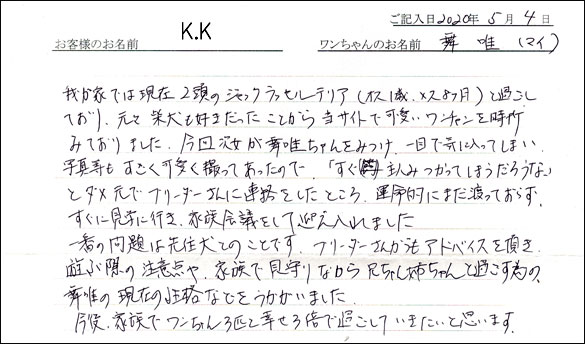 ご記入日2020年5月4日
お客様のお名前 K.K ワンちゃんのお名前 舞唯(マイ)
我が家では現在2頭のジャックラッセルテリア(オス1歳、メス8ヶ月)と過ごし
ており、元々柴犬も好きだったことから当サイトで可愛いワンチャンを時折
みておりました。今回次女が舞唯ちゃんをみつけ、一目で気に入ってしまい、
写真等もすごく可愛く撮ってあったので、「すぐ主人みつかってしまうだろうな」
とダメ元でブリーダーさんに連絡をしたところ、運命的にまだ渡っておらず、
すぐに見学に行き、家族会議をして迎え入れました
一番の問題は先住犬とのことです。ブリーダーさんからもアドバイスを頂き、
遊ぶ際の注意点や、家族で見守りながら兄ちゃん姉ちゃんと過ごす為の、
舞唯の現在の性格などをうかがいました。
今後、家族でワンちゃん3匹と幸せ3倍で過ごしていきたいと思います。